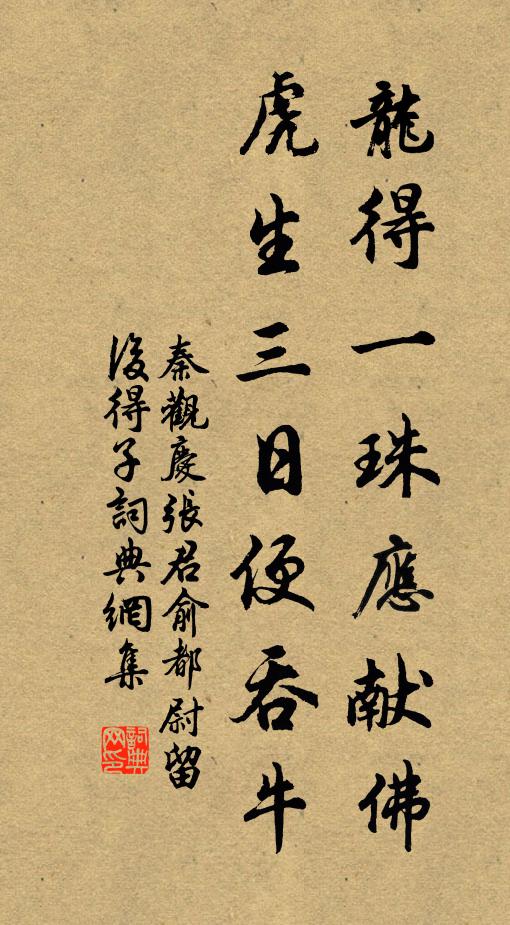 龍得一珠應献佛
虎生三日便吞牛
秦觀慶張君俞都尉留
後得子詞典網集
詞典网印